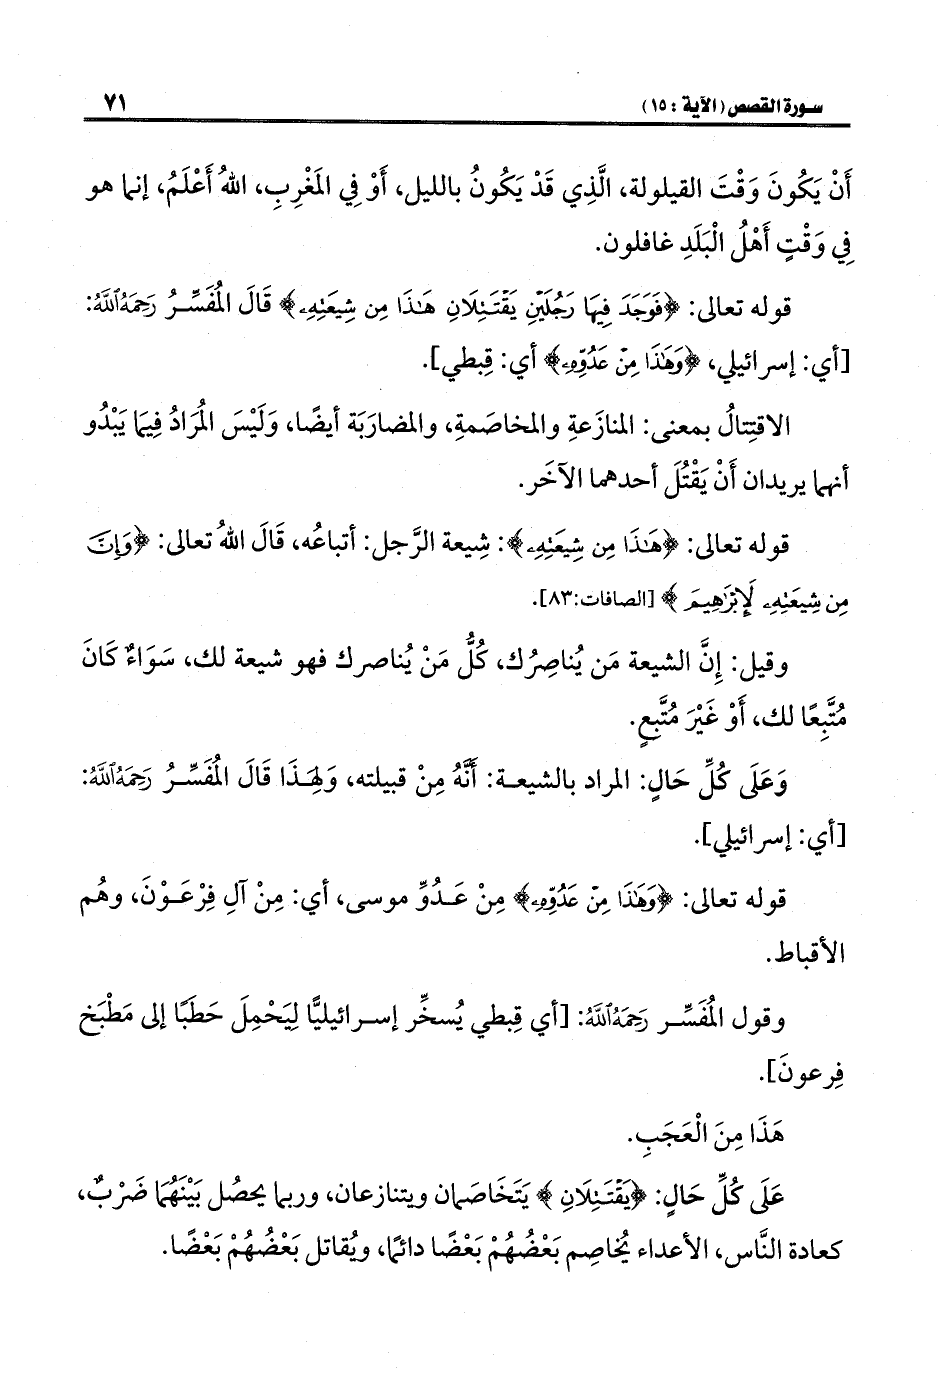 سورة القصص (الآية : ١٥) ٧١
أَنْ يَكُونَ وَقْتَ القيلولة، الَّذِي قَدْ يَكُونُ بالليل، أَوْ فِي المَغْرِبِ، اللهُ أَعْلَمُ، إنما هو
فِي وَقْتٍ أَهْلُ الْبَلَدِ غافلون.
قوله تعالى: ﴿فَوَجَدَ فِيهَا رَجُلَيْنِ يَقْتَتِلَانِ هَٰذَا مِن شِيعَتِهِۦ﴾ قَالَ المُفَسِّرُ رَحِمَهُ اللَّهُ:
[أي: إسرائيلي، ﴿وَهَٰذَا مِنْ عَدُوِّهِۦ﴾ أي: قِبطي].
الاقتِتالُ بمعنى: المنازَعةِ والمخاصَمةِ، والمضارَبَة أيضًا، وَلَيْسَ المُرَادُ فِيمَا يَبْدُو
أنهما يريدان أَنْ يَقْتُلَ أحدهما الآخَر.
قوله تعالى: ﴿هَٰذَا مِن شِيعَتِهِۦ﴾: شِيعة الرَّجل: أتباعُه، قَالَ اللهُ تعالى: ﴿وَإِنَّ
مِن شِيعَتِهِۦ لَإِبْرَٰهِيمَ﴾ [الصافات:٨٣].
وقيل: إِنَّ الشيعة مَن يُناصِرُك، كُلُّ مَنْ يُناصرك فهو شيعة لك، سَوَاءٌ كَانَ
مُتَّبِعًا لك، أَوْ غَيْرَ مُتَّبِعٍ.
وَعَلَى كُلِّ حَالٍ: المراد بالشيعة: أَنَّهُ مِنْ قبيلته، وَلِهَذَا قَالَ المُفَسِّرُ رَحِمَهُ اللَّهُ:
[أي: إسرائيلي].
قوله تعالى: ﴿وَهَٰذَا مِنْ عَدُوِّهِۦ﴾ مِنْ عَدُوِّ موسى، أي: مِنْ آلِ فِرْعَوْنَ، وهُم
الأقباط.
وقول المُفَسِّر رَحِمَهُ اللَّهُ: [أي قِبطي يُسخِّر إسرائيليًّا لِيَحْمِلَ حَطَبًا إلى مَطْبَخِ
فِرعونَ].
هَذَا مِنَ الْعَجَبِ.
عَلَى كُلِّ حَالٍ: ﴿يَقْتَتِلَانِ﴾ يَتَخَاصَمان ويتنازعان، وربما يحصُل بَيْنَهُمَا ضَرْبٌ،
كعادة النَّاس، الأعداء يُخاصِم بَعْضُهُمْ بَعْضًا دائمًا، ويُقاتل بَعْضُهُمْ بَعْضًا.